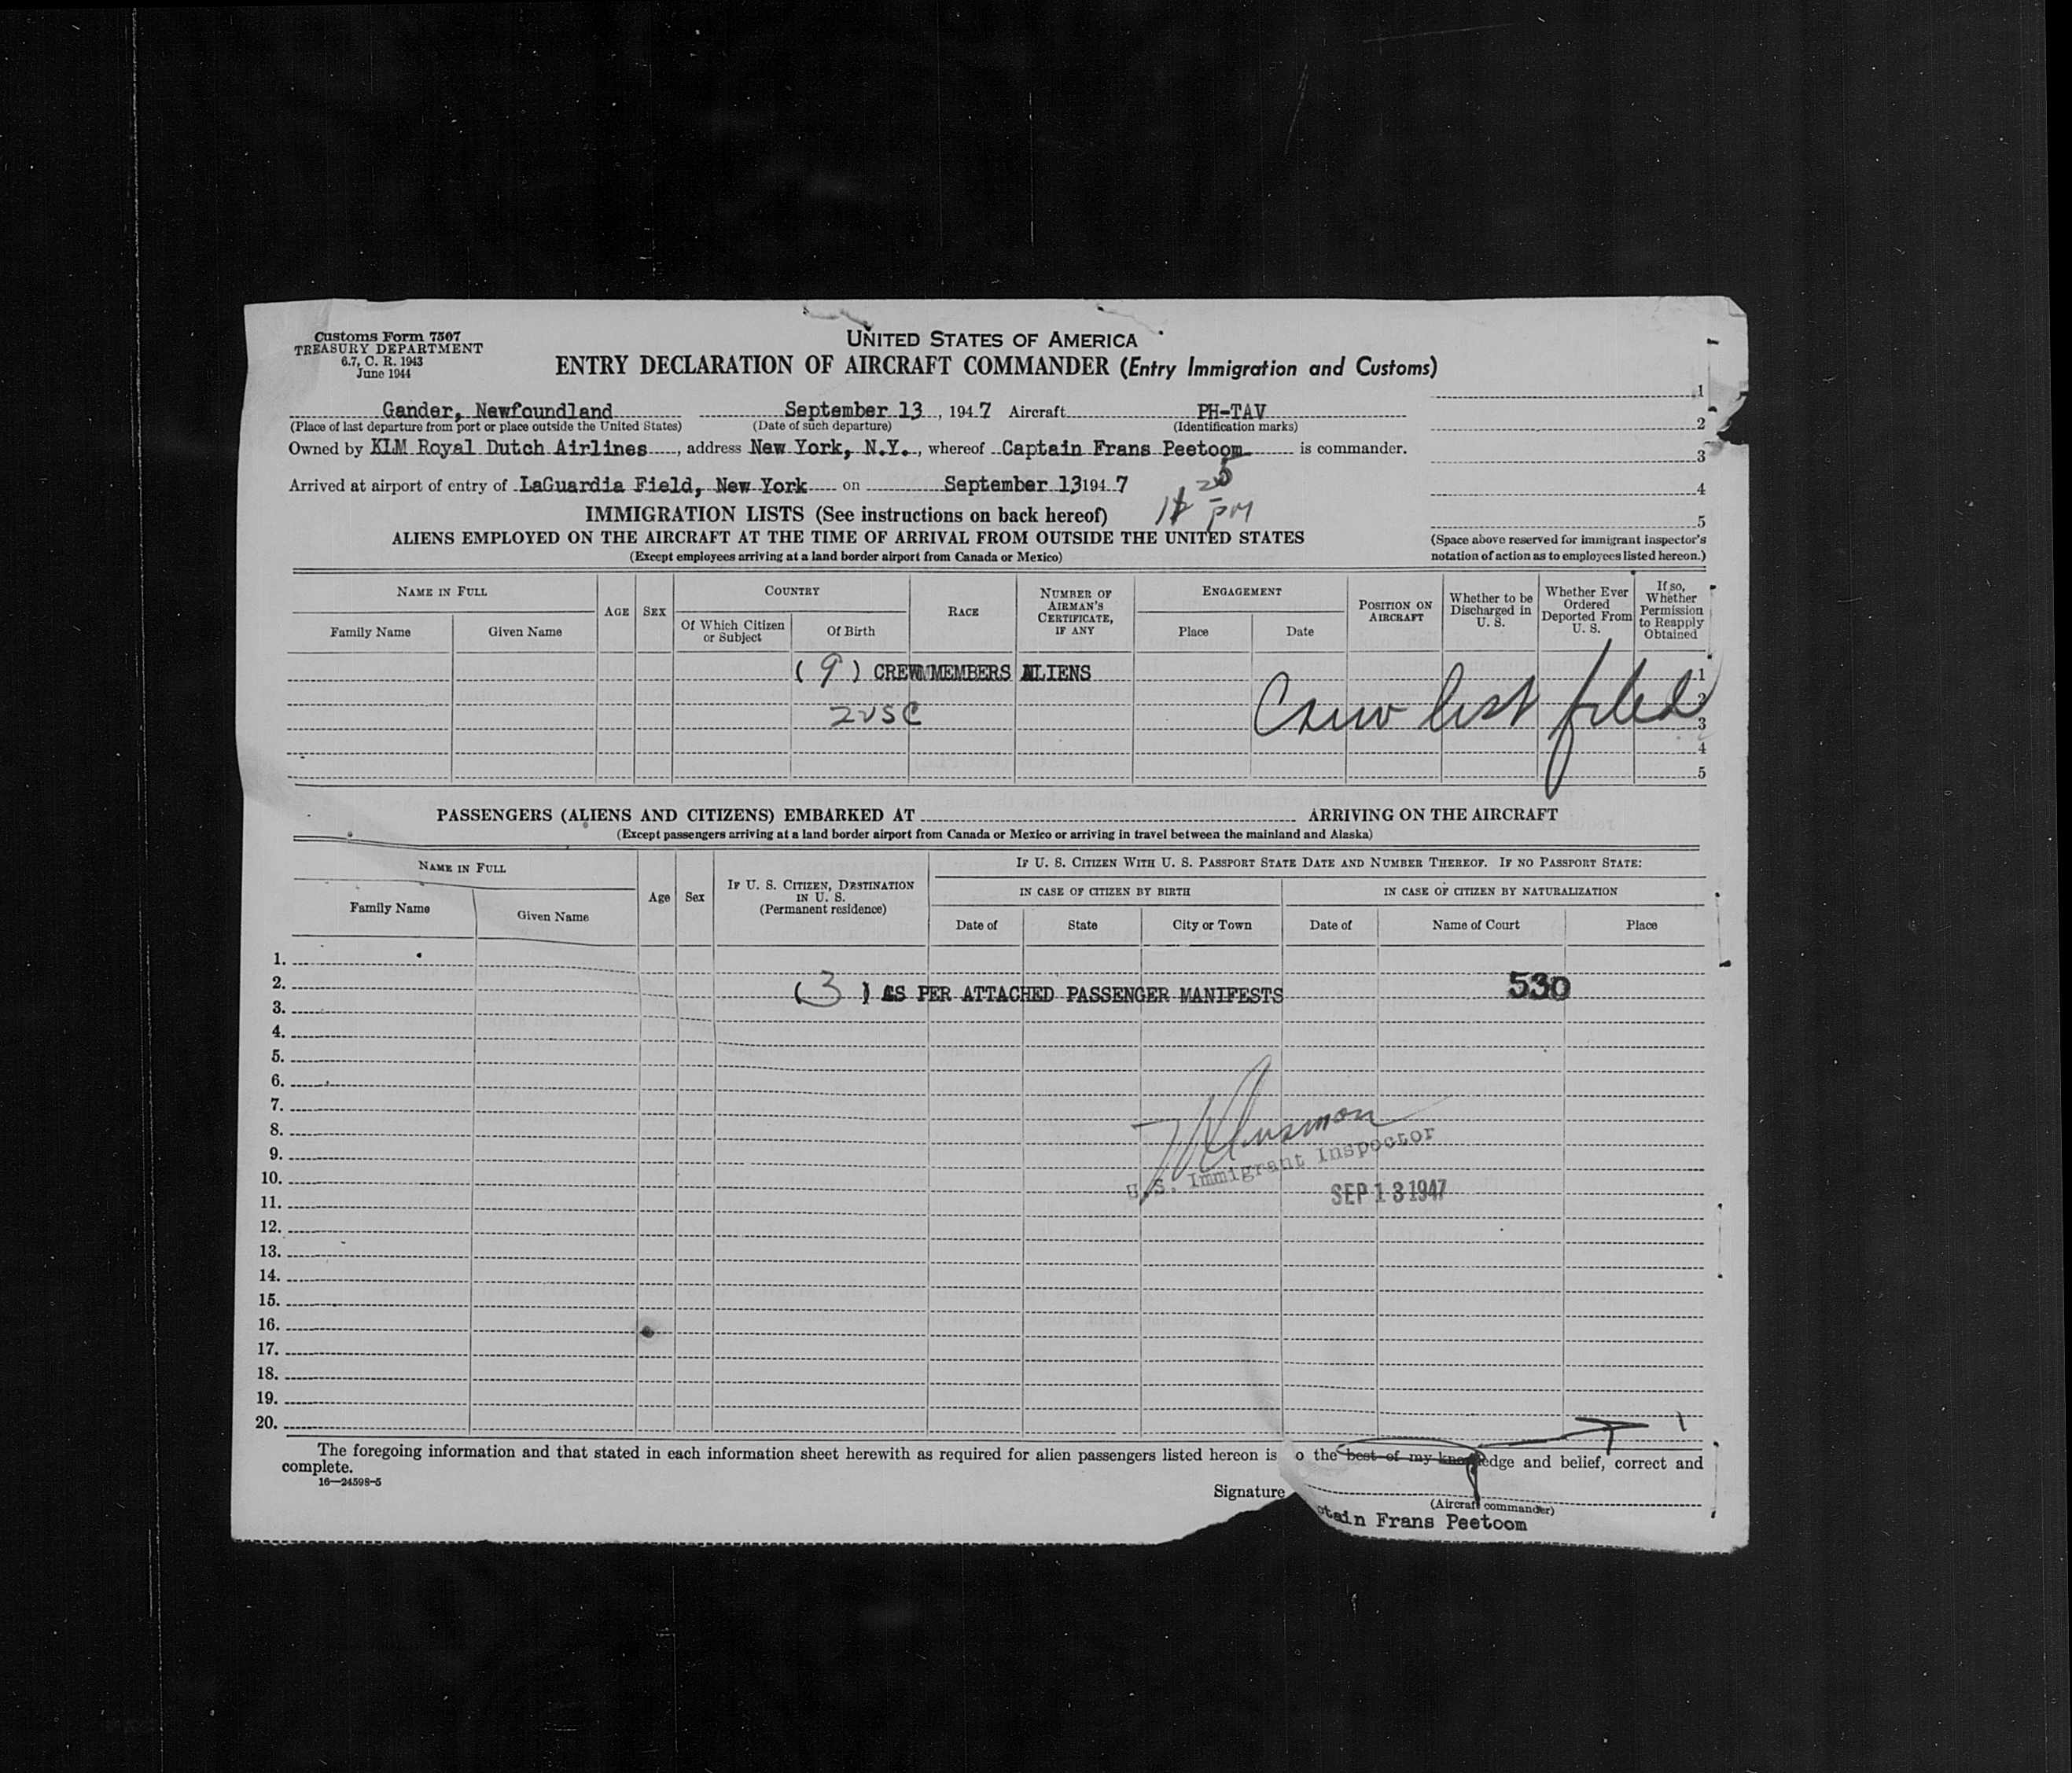 Customs Form 7507
TREASURY DEPARTMENT
6.7, C. R. 1943
June 1944
UNITED STATES OF AMERICA
ENTRY DECLARATION OF AIRCRAFT COMMANDER (Entry Immigration and Customs)
Gander, Newfoundland September 13, 1947 Aircraft PH-TAV
(Place of last departure from port or place outside the United States) (Date of such departure) (Identification marks)
Owned by KLM Royal Dutch Airlines, address New York, N.Y., whereof Captain Frans Peetoom is commander.
Arrived at airport of entry of LaGuardia Field, New York on September 13 1947
PM
1
2
3
4
5
(Space above reserved for immigrant inspector's
notation of action as to employees listed hereon.)
IMMIGRATION LISTS (See instructions on back hereof)
ALIENS EMPLOYED ON THE AIRCRAFT AT THE TIME OF ARRIVAL FROM OUTSIDE THE UNITED STATES
(Except employees arriving at a land border airport from Canada or Mexico)
NAME IN FULL
Family Name
Given Name
AGE
SEX
COUNTRY
Of Which Citizen
or Subject
Of Birth
RACE
NUMBER OF
AIRMAN'S
CERTIFICATE,
IF ANY
ENGAGEMENT
Place
Date
POSITION ON
AIRCRAFT
Whether to be
Discharged in
U. S.
Whether Ever
Ordered
Deported From
U. S.
If so,
Whether
Permission
to Reapply
Obtained
(9) CREW MEMBERS ALIENS 1
2 USC Crew list filed 2
3
4
5
PASSENGERS (ALIENS AND CITIZENS) EMBARKED AT ARRIVING ON THE AIRCRAFT
(Except passengers arriving at a land border airport from Canada or Mexico or arriving in travel between the mainland and Alaska)
NAME IN FULL
Family Name
Given Name
Age
Sex
IF U. S. CITIZEN, DESTINATION
IN U. S.
(Permanent residence)
IF U. S. CITIZEN WITH U. S. PASSPORT STATE DATE AND NUMBER THEREOF. IF NO PASSPORT STATE:
IN CASE OF CITIZEN BY BIRTH
IN CASE OF CITIZEN BY NATURALIZATION
Date of
State
City or Town
Date of
Name of Court
Place
1.
2. (3) AS PER ATTACHED PASSENGER MANIFESTS 530
3.
4.
5.
6.
7.
8.
9.
U.S. Immigrant Inspector
10.
SEP 13 1947
11.
12.
13.
14.
15.
16.
17.
18.
19.
20.
The foregoing information and that stated in each information sheet herewith as required for alien passengers listed hereon is o the best of my knowledge and belief, correct and
complete.
16—24598-5
Signature
(Aircraft commander)
ptain Frans Peetoom